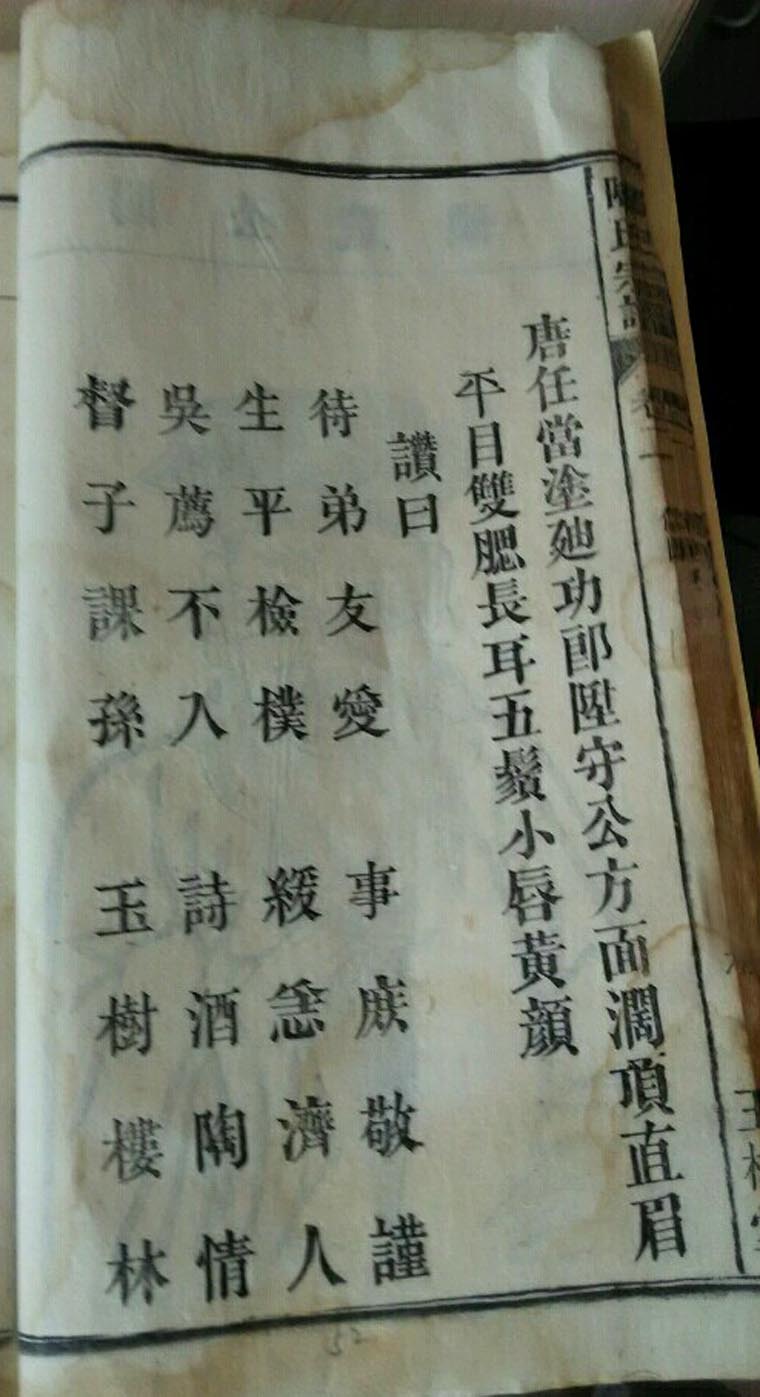 陳氏宗譜
卷一
唐任當塗廸功郎陞守公方面濶頂直眉
平目雙腮長耳五鬚小唇黃顔
讚曰
待弟友愛 事庶敬謹
生平檢樸 緩急濟人
吳薦不入 詩酒陶情
督子課孫 玉樹樓林
52